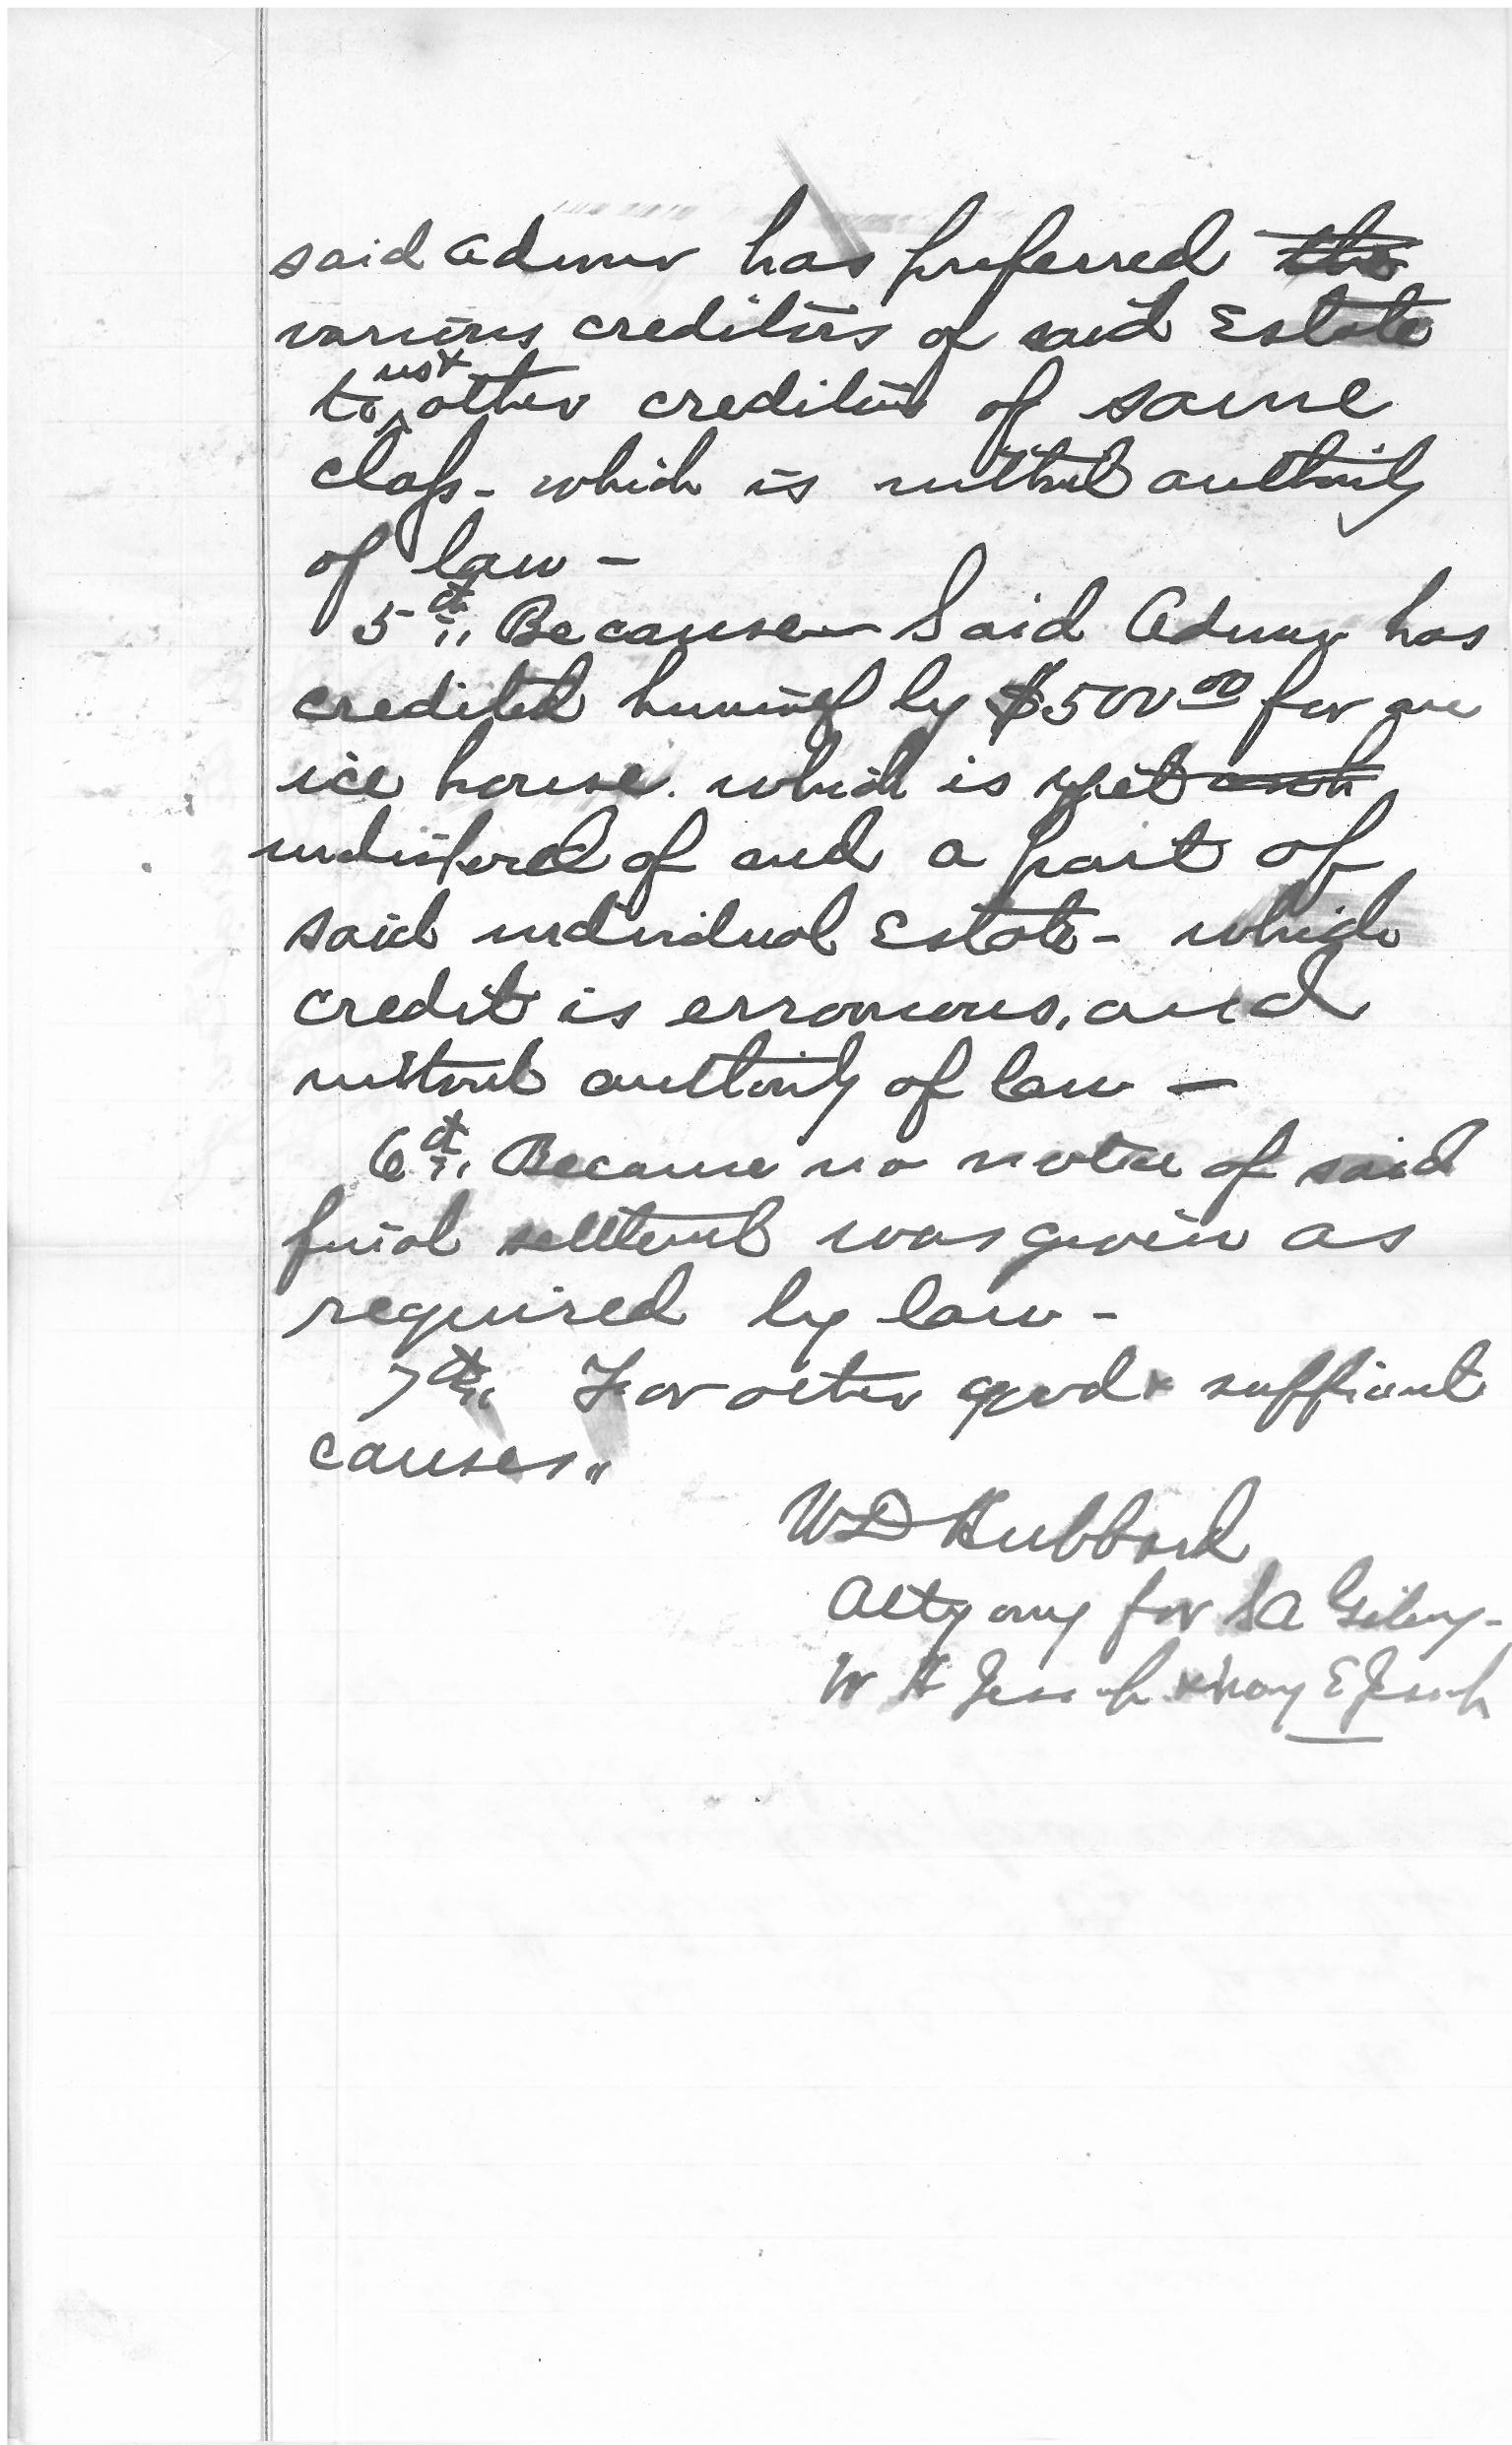 said Admr has preferred the
various creditors of said Estate
to not other creditors of same
class - which is without authority
of law -
5th,, Because Said Admr has
credited himself by $500 00 for an
ice house. which is yet
undisposed of and a part of
said individual Estate - which
credit is erroneous, and
without authority of law -
6th,, Because no notice of said
final settlement was given as
required by law -
7th,, For other good & sufficient
causes,,
WD Hubbard
Atty for SA
W H & E